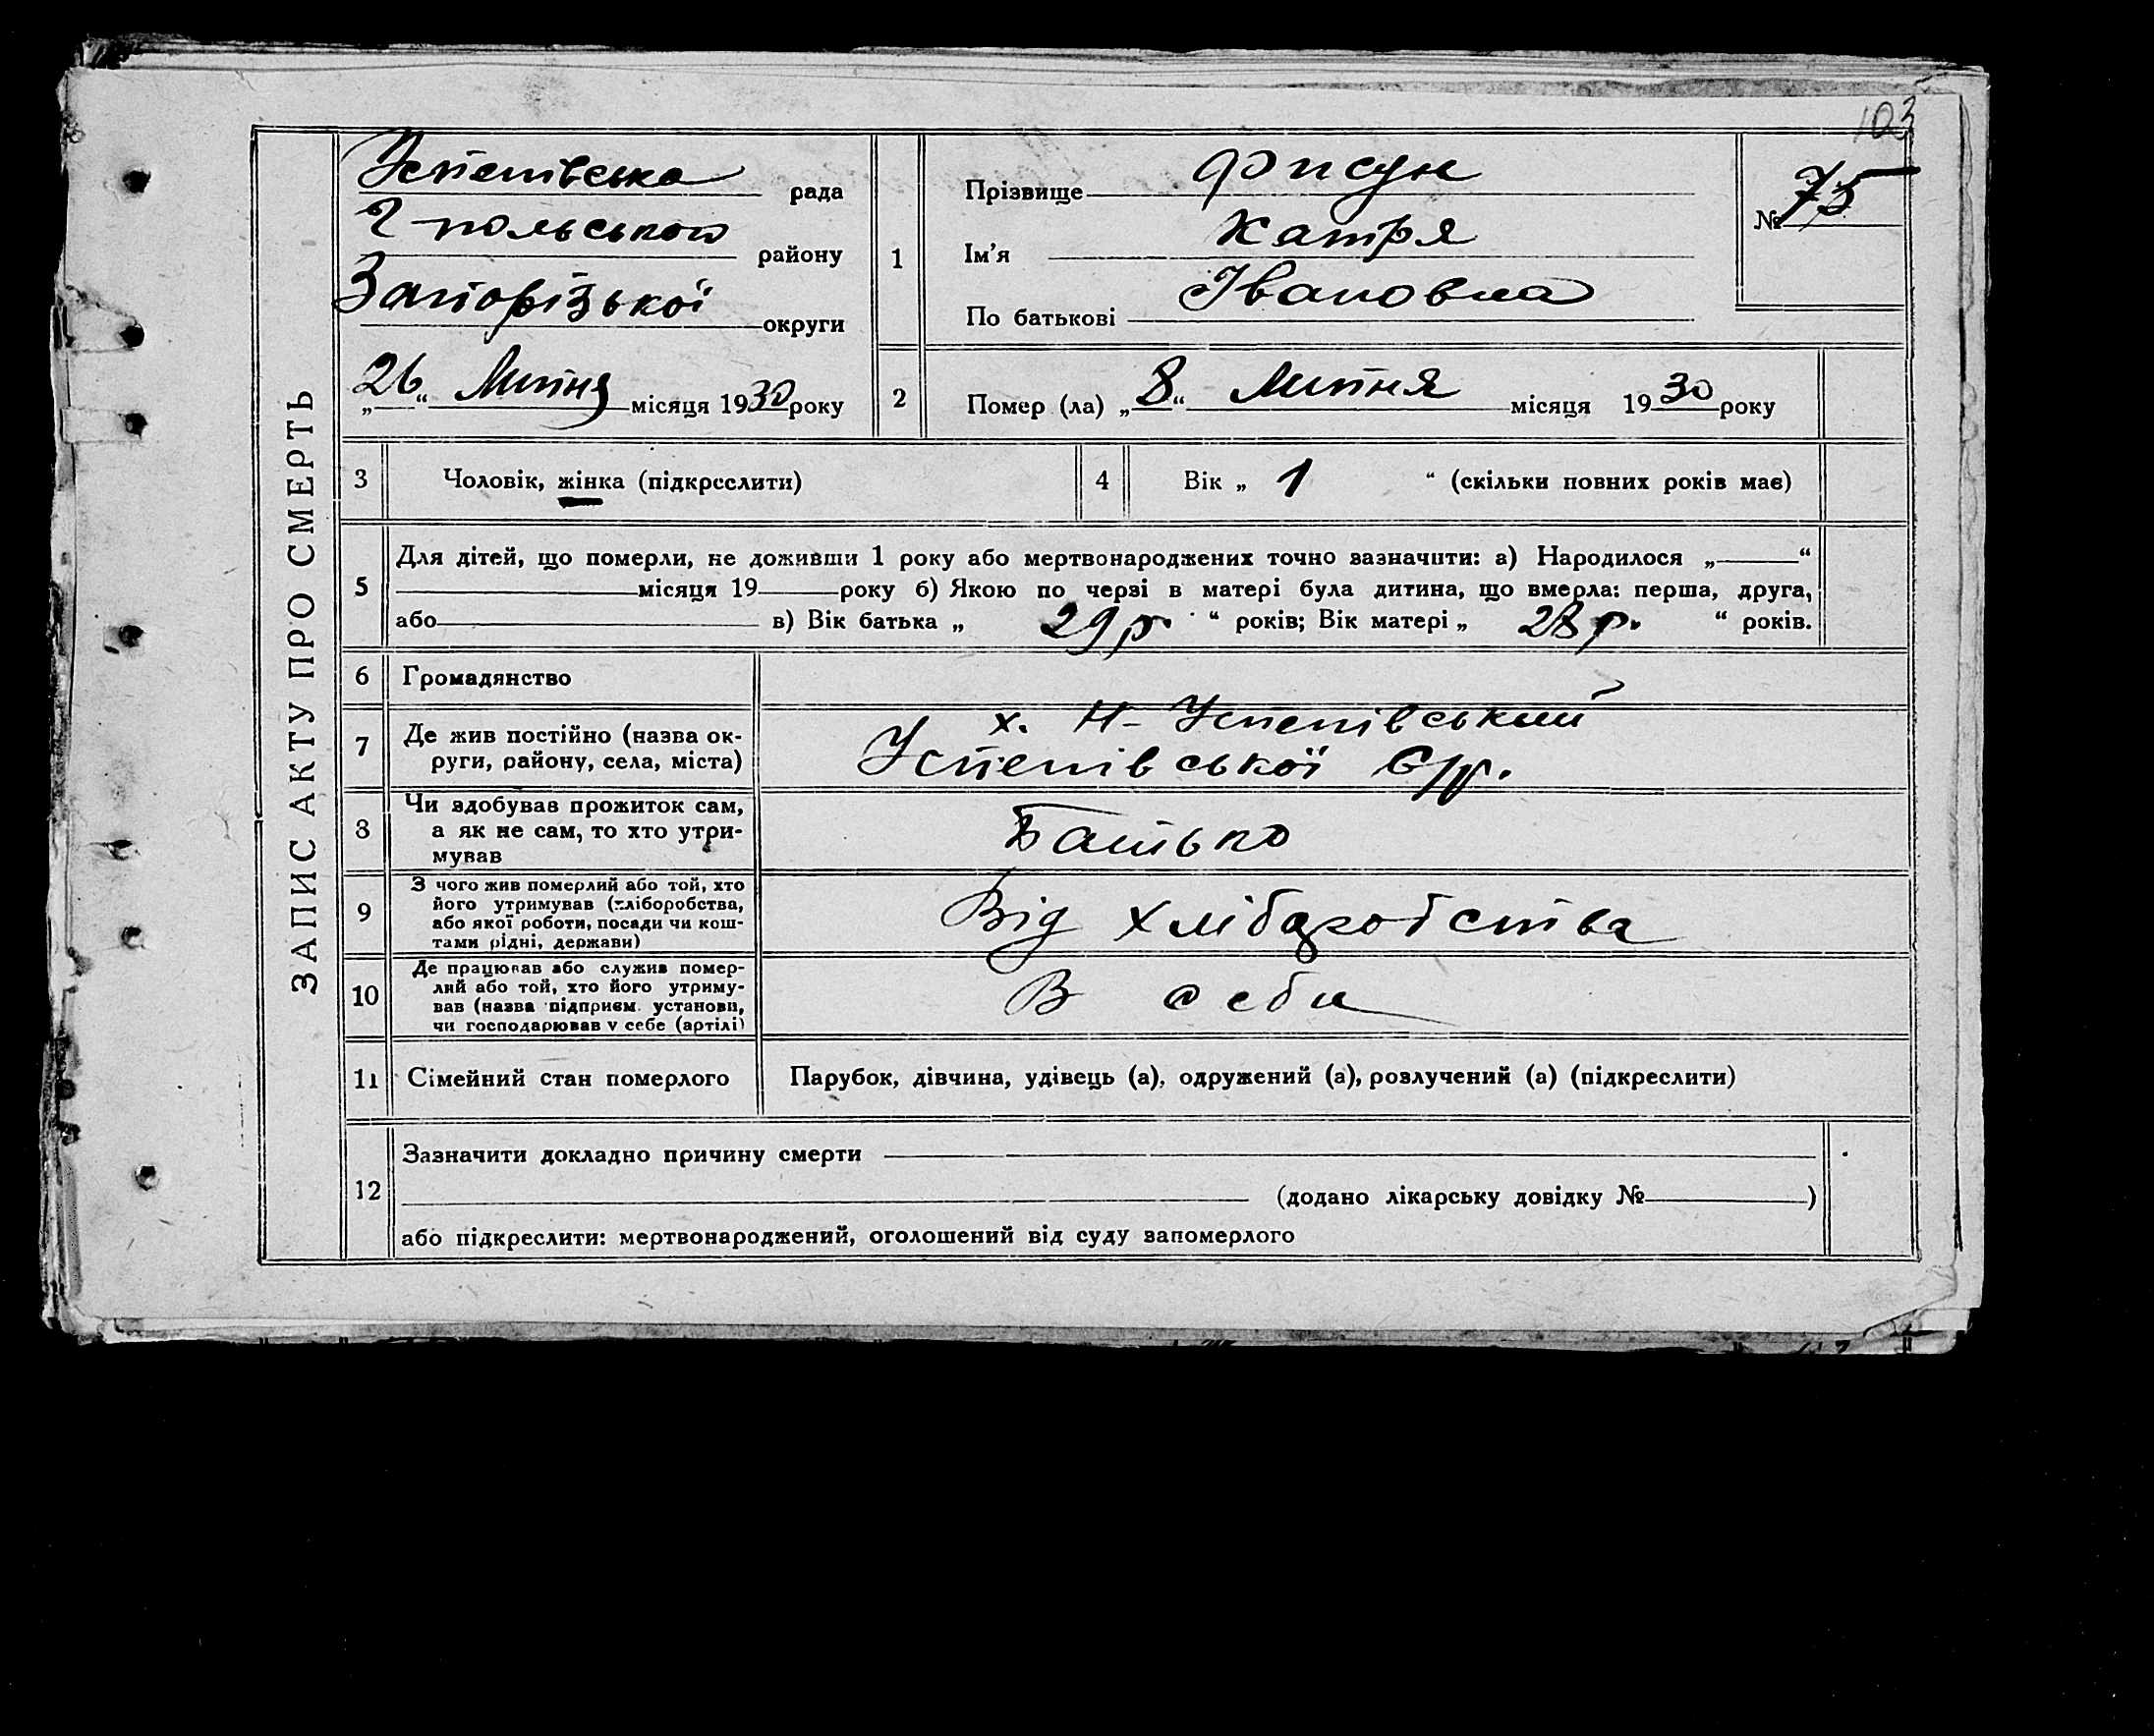 103
ЗАПИС АКТУ ПРО СМЕРТЬ
Успенівська рада
Г-польського району
Запорізької округи
„26“ Липня місяця 1930 року
1
Прізвище Фисун
Ім'я Катря
По батькові Івановна
№ 75
2
Помер (ла) „8“ Липня місяця 1930 року
3 Чоловік, жінка (підкреслити)
4 Вік „ 1 “ (скільки повних років має)
5
Для дітей, що померли, не доживши 1 року або мертвонароджених точно зазначити: а) Народилося „ “
місяця 19 року б) Якою по черзі в матері була дитина, що вмерла: перша, друга,
або в) Вік батька „ 29 р. “ років; Вік матері „ 28 р. “ років.
6 Громадянство
7 Де жив постійно (назва ок-
руги, району, села, міста)
х. Н-Успенівський
Успенівської с/р.
8
Чи здобував прожиток сам,
а як не сам, то хто утри-
мував
Батько
9
З чого жив померлий або той, хто
його утримував (хліборобства,
або якої роботи, посади чи кош-
тами рідні, держави)
Від хліборобства
10
Де працював або служив помер-
лий або той, хто його утриму-
вав (назва підприєм. установи,
чи господарював у себе (артілі)
В себи
11 Сімейний стан померлого
Парубок, дівчина, удівець (а), одружений (а), розлучений (а) (підкреслити)
12
Зазначити докладно причину смерти
(додано лікарську довідку № )
або підкреслити: мертвонароджений, оголошений від суду запомерлого